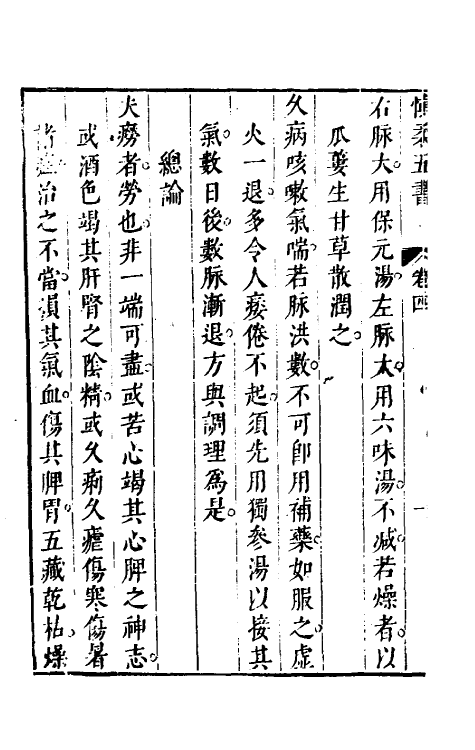 慎柔五書 卷四
右脉大用保元湯左脉大用六味湯不減若燥者以
瓜蔞生甘草散潤之
久病咳嗽氣喘若脉洪數不可卽用補藥如服之虛
火一退多令人痿倦不起須先用獨參湯以接其
氣數日後數脉漸退方與調理爲是
總論
夫癆者勞也非一端可盡或苦心竭其心脾之神志
或酒色竭其肝腎之陰精或久痢久瘧傷寒傷暑
諸症治之不當損其氣血傷其脾胃五藏乾枯燥